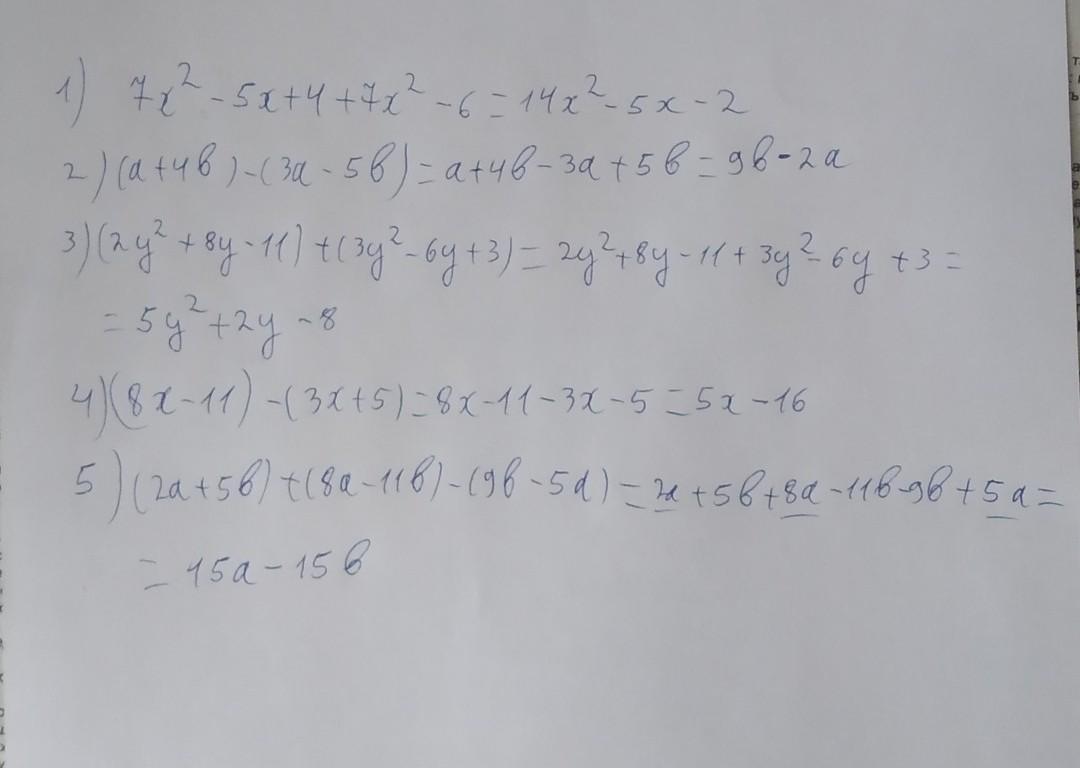 1) 7x² - 5x + 4 + 7x² - 6 = 14x² - 5x - 2
2) (a + 4b) - (3a - 5b) = a + 4b - 3a + 5b = 9b - 2a
3) (2y² + 8y - 11) + (3y² - 6y + 3) = 2y² + 8y - 11 + 3y² - 6y + 3 =
= 5y² + 2y - 8
4) (8x - 11) - (3x + 5) = 8x - 11 - 3x - 5 = 5x - 16
5) (2a + 5b) + (8a - 11b) - (9b - 5a) = 2a + 5b + 8a - 11b - 9b + 5a =
= 15a - 15b